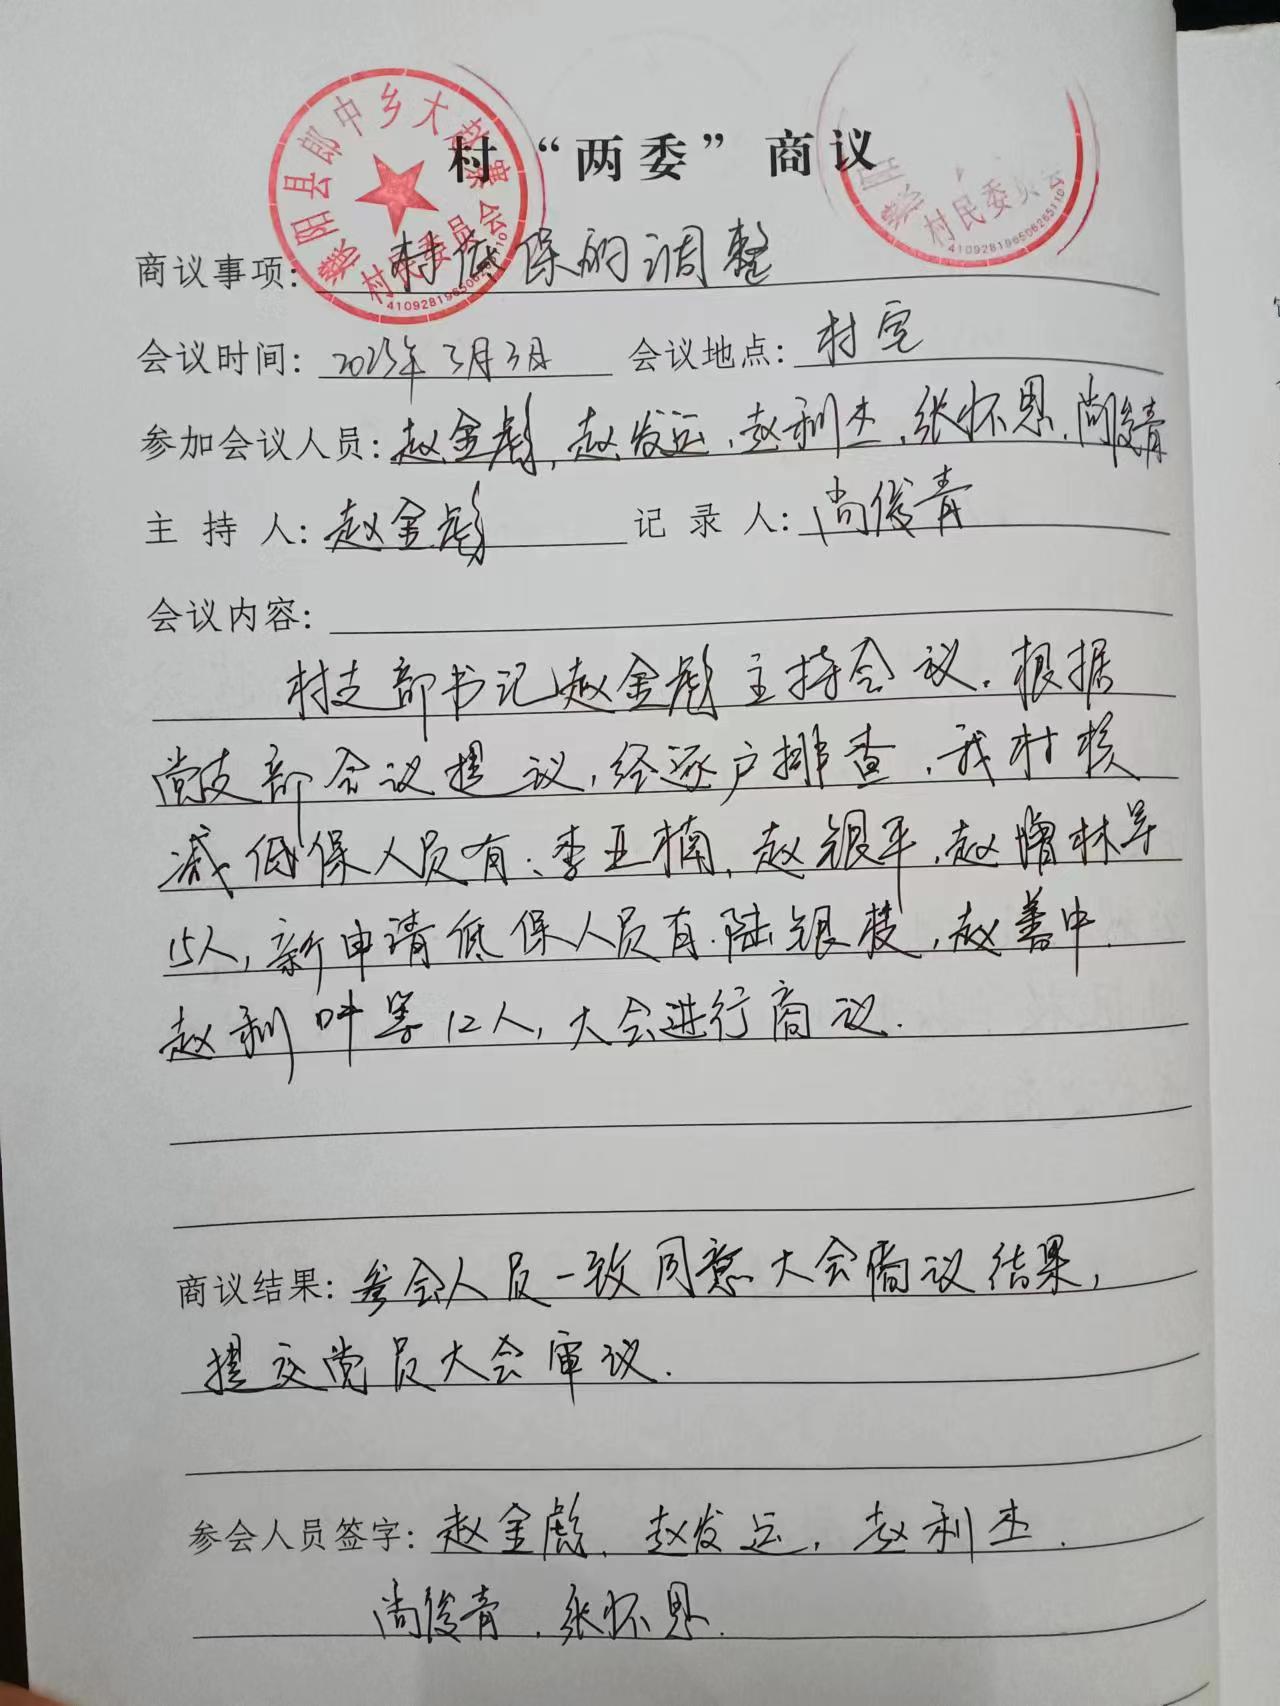 村“两委”商议
濮阳县郎中乡大赵寨
村民委员会
4109281965062
村民委员会
4109281965062651101
商议事项：村低保的调整
会议时间：2023年3月3日 会议地点：村室
参加会议人员：赵金彪，赵发运，赵利杰，张怀恩，尚俊青
主持人：赵金彪 记录人：尚俊青
会议内容：
村支部书记赵金彪主持会议。根据
党支部会议提议，经逐户排查，我村核
减低保人员有：李亚楠，赵银平，赵增林等
15人，新申请低保人员有：陆银枝，赵善中
赵利叶等12人，大会进行商议.
商议结果：参会人员一致同意大会商议结果，
提交党员大会审议.
参会人员签字：赵金彪，赵发运，赵利杰.
尚俊青，张怀恩.